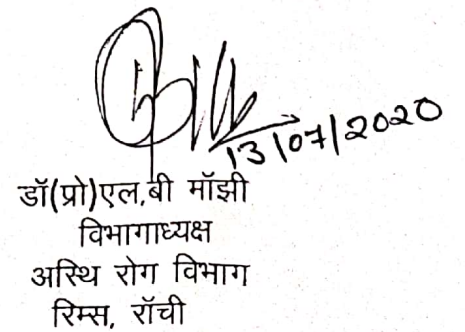 13/07/2020
डॉ(प्रो)एल.बी मॉझी
विभागाध्यक्ष
अस्थि रोग विभाग
रिम्स, रॉची